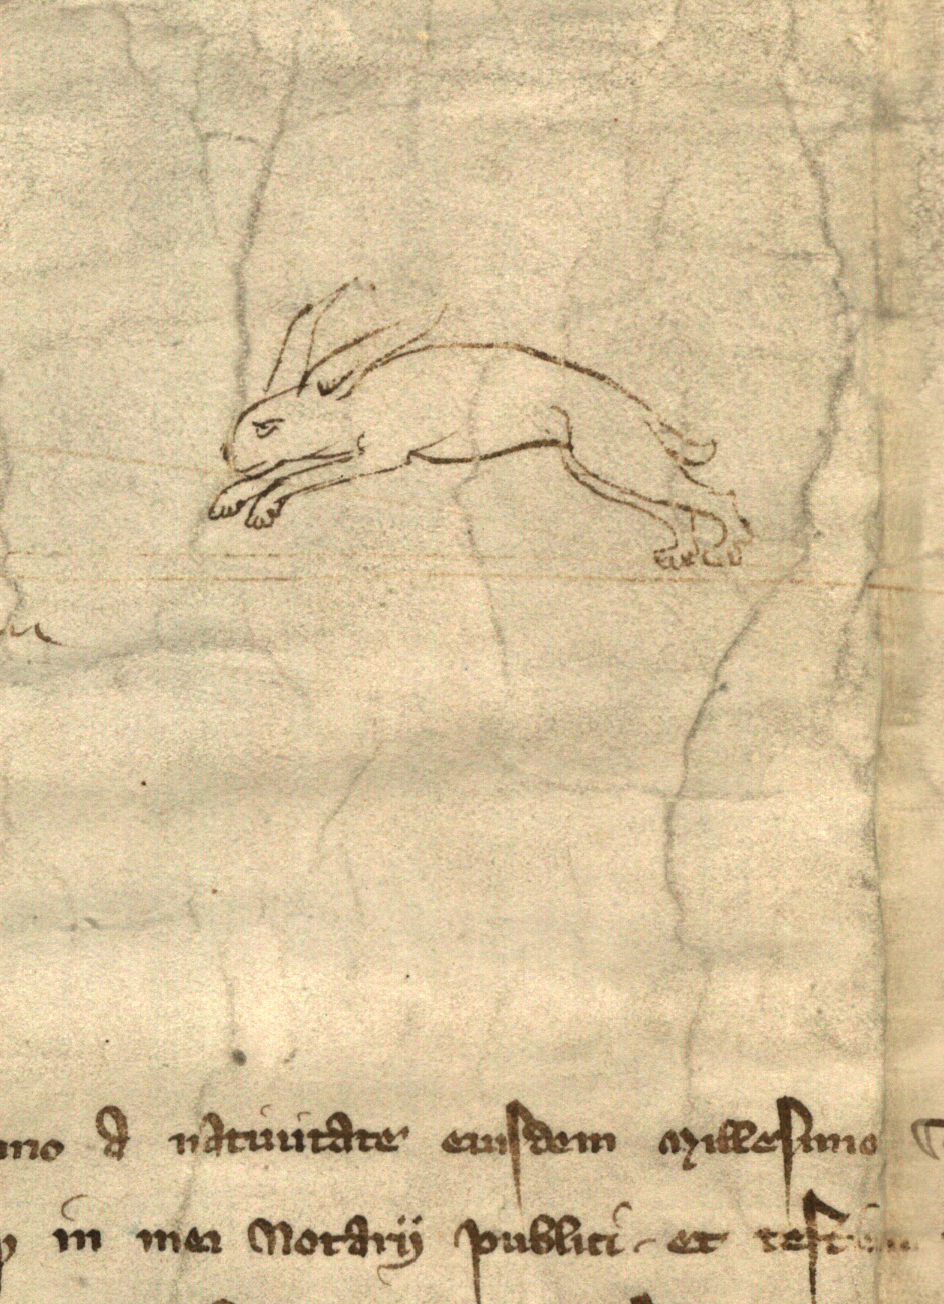 a natiuitate eiusdem Millesimo
in mei Notarij publici et